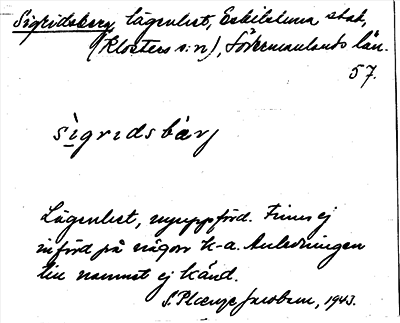 Sigridsberg, Lägenhet, Eskilstuna stad,
(Klosters s:n), Södermanlands län.
57.
sìgridsbärj
Lägenhet, nyuppförd. Finns ej
införd på någon K-a. Anledningen
till namnet ej känd.
S. Plænge Jacobson, 1943.